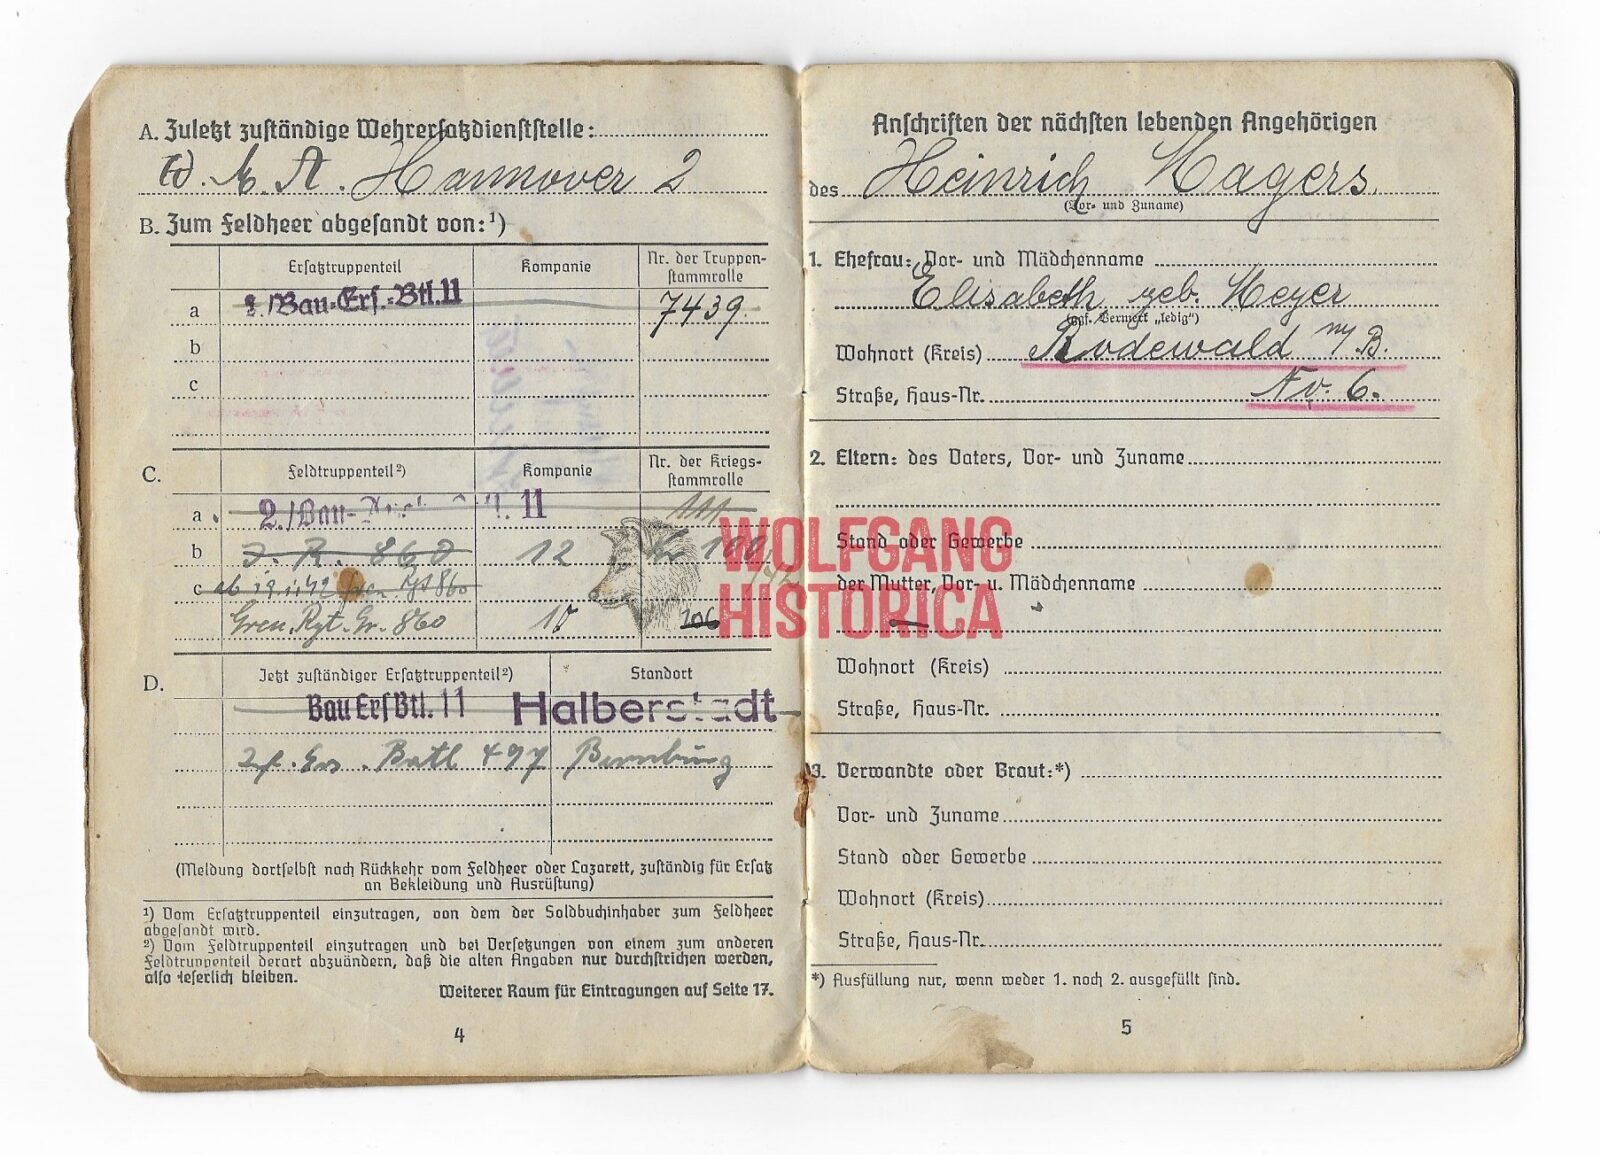 A. Zuletzt zuständige Wehrersatzdienststelle:
W. M. A. Hannover 2
B. Zum Feldheer abgesandt von:¹)
Ersatztruppenteil Kompanie Nr. der Truppen-
stammrolle
a 2./Bau-Ers.-Btl. 11 7439.
b
c
C. Feldtruppenteil²) Kompanie Nr. der Kriegs-
stammrolle
a 2./Bau- 11 111
b J. R. 860 12 100
c ab 860
Gren. Rgt. Gr. 860 106
D. Jetzt zuständiger Ersatztruppenteil²) Standort
Bau Ers Btl. 11 Halberstadt
Ers. Batl 497 Bernburg
(Meldung dortselbst nach Rückkehr vom Feldheer oder Lazarett, zuständig für Ersatz
an Bekleidung und Ausrüstung)
¹) Vom Ersatztruppenteil einzutragen, von dem der Soldbuchinhaber zum Feldheer
abgesandt wird.
²) Vom Feldtruppenteil einzutragen und bei Versetzungen von einem zum anderen
Feldtruppenteil derart abzuändern, daß die alten Angaben nur durchstrichen werden,
also leserlich bleiben.
Weiterer Raum für Eintragungen auf Seite 17.
4
Anschriften der nächsten lebenden Angehörigen
des Heinrich Hagers.
(Vor- und Zuname)
1. Ehefrau: Vor- und Mädchenname
Elisabeth geb. Meyer
(ggf. Vermerk „ledig“)
Wohnort (Kreis) Rodewald m/B.
Straße, Haus-Nr. No. 6.
2. Eltern: des Vaters, Vor- und Zuname
Stand oder Gewerbe
der Mutter, Vor- u. Mädchenname
Wohnort (Kreis)
Straße, Haus-Nr.
3. Verwandte oder Braut:*)
Vor- und Zuname
Stand oder Gewerbe
Wohnort (Kreis)
Straße, Haus-Nr.
*) Ausfüllung nur, wenn weder 1. noch 2. ausgefüllt sind.
5
WOLFGANG
HISTORICA